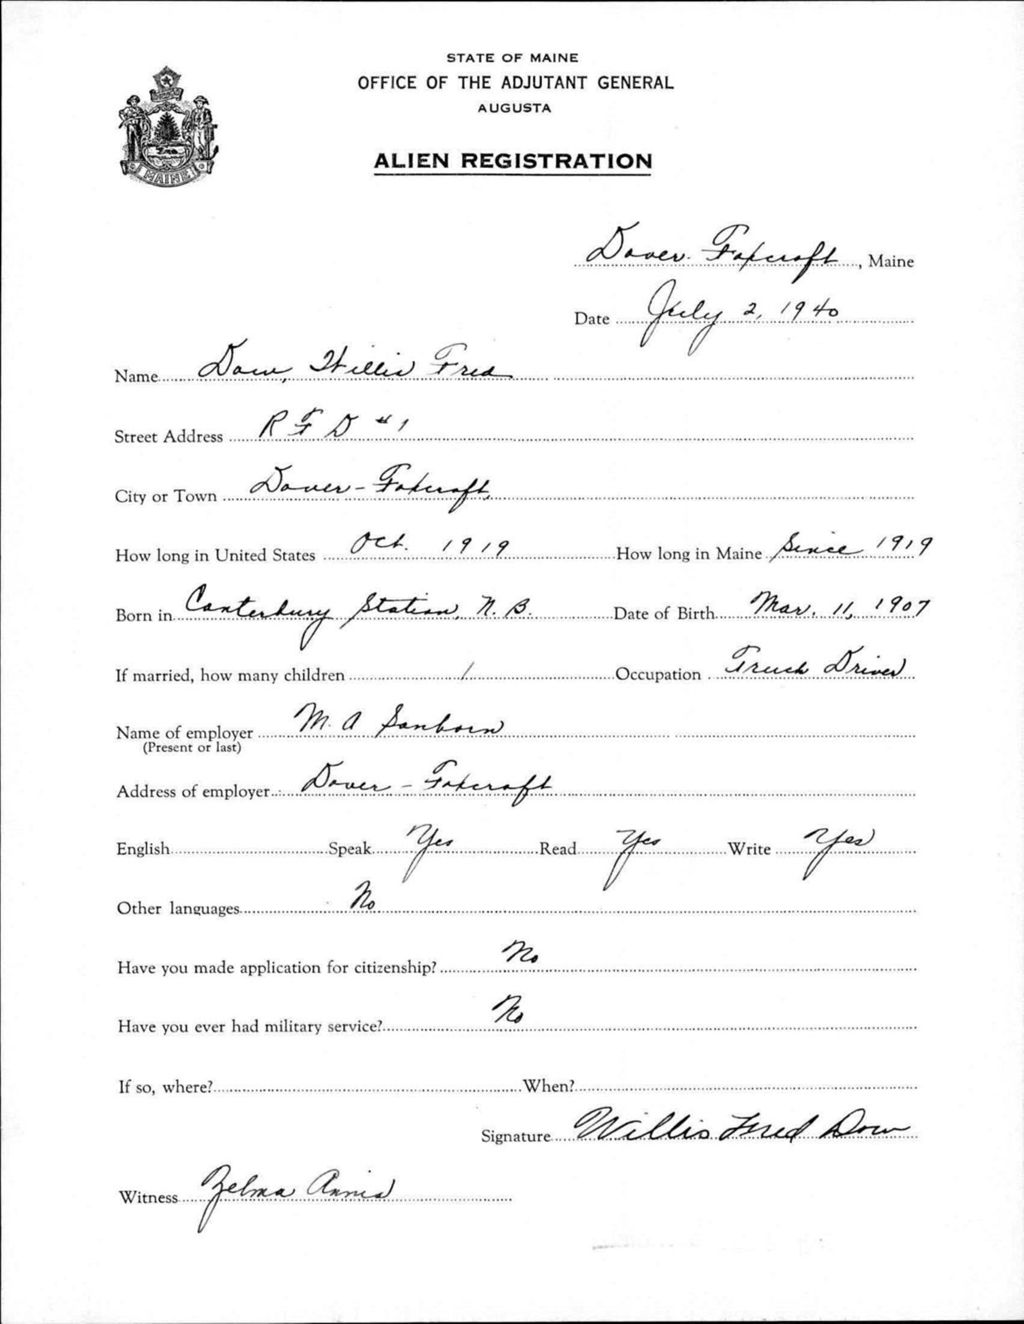 STATE OF MAINE
OFFICE OF THE ADJUTANT GENERAL
AUGUSTA
ALIEN REGISTRATION
MAINE
Dover-Foxcroft, Maine
Date July 2, 1940
Name Dow, Willis Fred
Street Address R F D #1
City or Town Dover-Foxcroft,
How long in United States Oct. 1919 How long in Maine Since 1919
Born in Canterbury Station, N. B. Date of Birth Mar. 11, 1907
If married, how many children 1 Occupation Truck Driver
Name of employer M. A Sanborn
(Present or last)
Address of employer Dover-Foxcroft
English Speak Yes Read Yes Write Yes
Other languages No
Have you made application for citizenship? No
Have you ever had military service? No
If so, where? When?
Signature Willis Fred Dow
Witness Zelma Annis